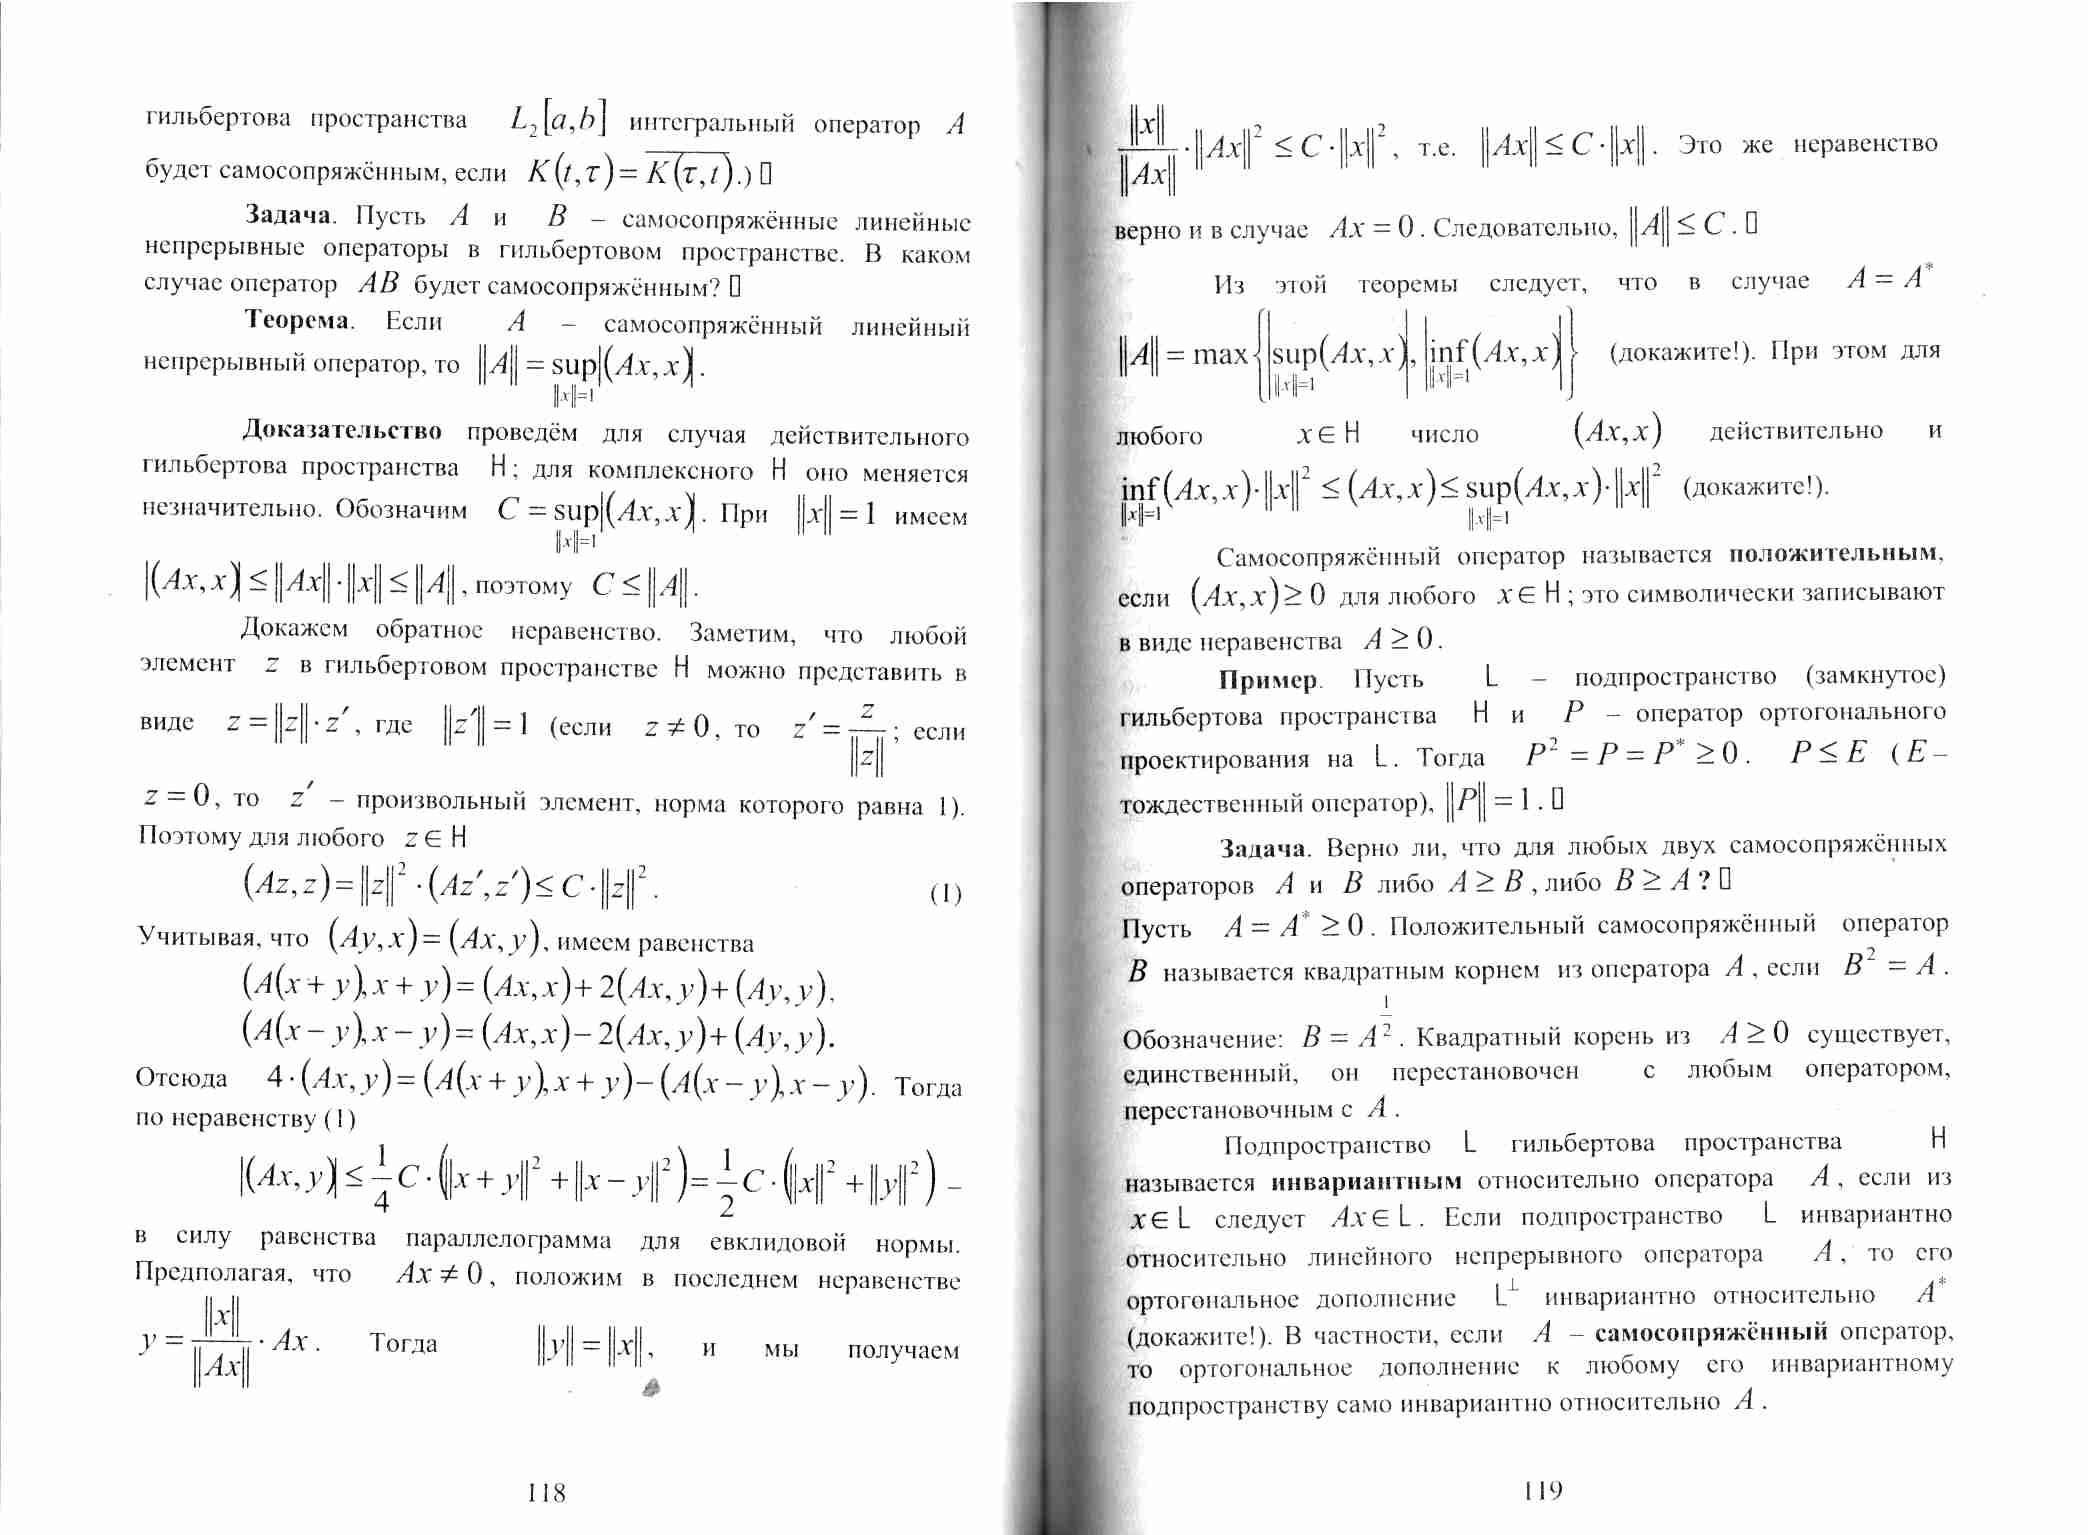 гильбертова пространства L₂[a,b] интегральный оператор A
будет самосопряжённым, если K(t,τ) = \overline{K(τ,t)}.) ▯
Задача. Пусть A и B – самосопряжённые линейные
непрерывные операторы в гильбертовом пространстве. В каком
случае оператор AB будет самосопряжённым? ▯
Теорема. Если A – самосопряжённый линейный
непрерывный оператор, то ||A|| = sup_{||x||=1} |(Ax,x)|.
Доказательство проведём для случая действительного
гильбертова пространства H; для комплексного H оно меняется
незначительно. Обозначим C = sup_{||x||=1} |(Ax,x)|. При ||x|| = 1 имеем
|(Ax,x)| ≤ ||Ax||·||x|| ≤ ||A||, поэтому C ≤ ||A||.
Докажем обратное неравенство. Заметим, что любой
элемент z в гильбертовом пространстве H можно представить в
виде z = ||z||·z′, где ||z′|| = 1 (если z ≠ 0, то z′ = z/||z||; если
z = 0, то z′ – произвольный элемент, норма которого равна 1).
Поэтому для любого z ∈ H
(Az,z) = ||z||²·(Az′,z′) ≤ C·||z||². (1)
Учитывая, что (Ay,x) = (Ax,y), имеем равенства
(A(x+y),x+y) = (Ax,x) + 2(Ax,y) + (Ay,y),
(A(x−y),x−y) = (Ax,x) − 2(Ax,y) + (Ay,y).
Отсюда 4·(Ax,y) = (A(x+y),x+y) − (A(x−y),x−y). Тогда
по неравенству (1)
|(Ax,y)| ≤ 1/4 C·(||x+y||² + ||x−y||²) = 1/2 C·(||x||² + ||y||²) –
в силу равенства параллелограмма для евклидовой нормы.
Предполагая, что Ax ≠ 0, положим в последнем неравенстве
y = ||x||/||Ax||·Ax. Тогда ||y|| = ||x||, и мы получаем
118
||x||/||Ax||·||Ax||² ≤ C·||x||², т.е. ||Ax|| ≤ C·||x||. Это же неравенство
верно и в случае Ax = 0. Следовательно, ||A|| ≤ C. ▯
Из этой теоремы следует, что в случае A = A*
||A|| = max{|sup_{||x||=1}(Ax,x)|, |inf_{||x||=1}(Ax,x)|} (докажите!). При этом для
любого x ∈ H число (Ax,x) действительно и
inf_{||x||=1}(Ax,x)·||x||² ≤ (Ax,x) ≤ sup_{||x||=1}(Ax,x)·||x||² (докажите!).
Самосопряжённый оператор называется положительным,
если (Ax,x) ≥ 0 для любого x ∈ H; это символически записывают
в виде неравенства A ≥ 0.
Пример. Пусть L – подпространство (замкнутое)
гильбертова пространства H и P – оператор ортогонального
проектирования на L. Тогда P² = P = P* ≥ 0. P ≤ E (E–
тождественный оператор), ||P|| = 1. ▯
Задача. Верно ли, что для любых двух самосопряжённых
операторов A и B либо A ≥ B, либо B ≥ A? ▯
Пусть A = A* ≥ 0. Положительный самосопряжённый оператор
B называется квадратным корнем из оператора A, если B² = A.
Обозначение: B = A^{1/2}. Квадратный корень из A ≥ 0 существует,
единственный, он перестановочен с любым оператором,
перестановочным с A.
Подпространство L гильбертова пространства H
называется инвариантным относительно оператора A, если из
x ∈ L следует Ax ∈ L. Если подпространство L инвариантно
относительно линейного непрерывного оператора A, то его
ортогональное дополнение L^⊥ инвариантно относительно A*
(докажите!). В частности, если A – самосопряжённый оператор,
то ортогональное дополнение к любому его инвариантному
подпространству само инвариантно относительно A.
119